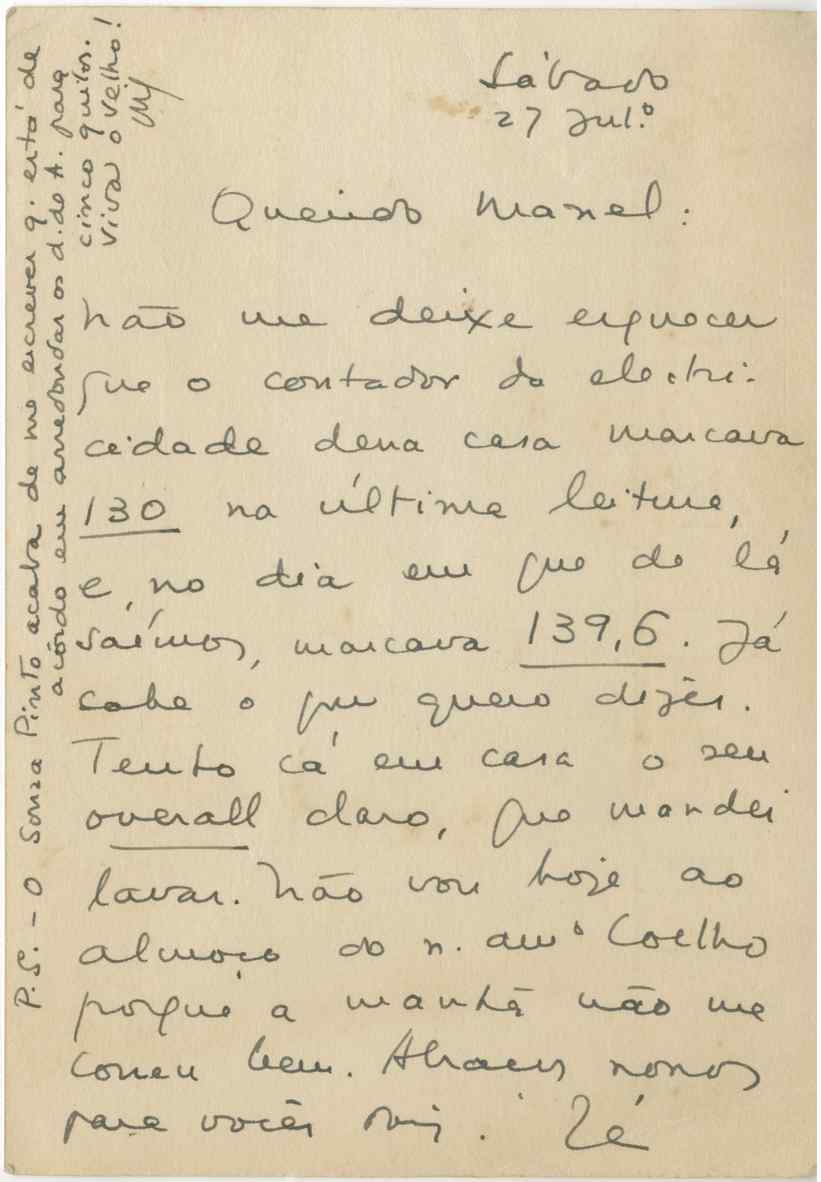 Sábado
27 Jul.º
Querido Manel:
Não me deixe esquecer
que o contador da electri-
cidade dessa casa marcava
130 na última leitura,
e, no dia em que de lá
saímos, marcava 139,6. Já
sabe o que quero dizer.
Tenho cá em casa o seu
overall claro, que mandei
lavar. Não vou hoje ao
almoço do n. amº Coelho
porque a manhã não me
correu bem. Abraços nossos
para vocês dois. Zé
P.S. - O Souza Pinto acaba de me escrever q. está de
acôrdo em arredondar os d. do A. para
cinco quilos.
Viva o velho!